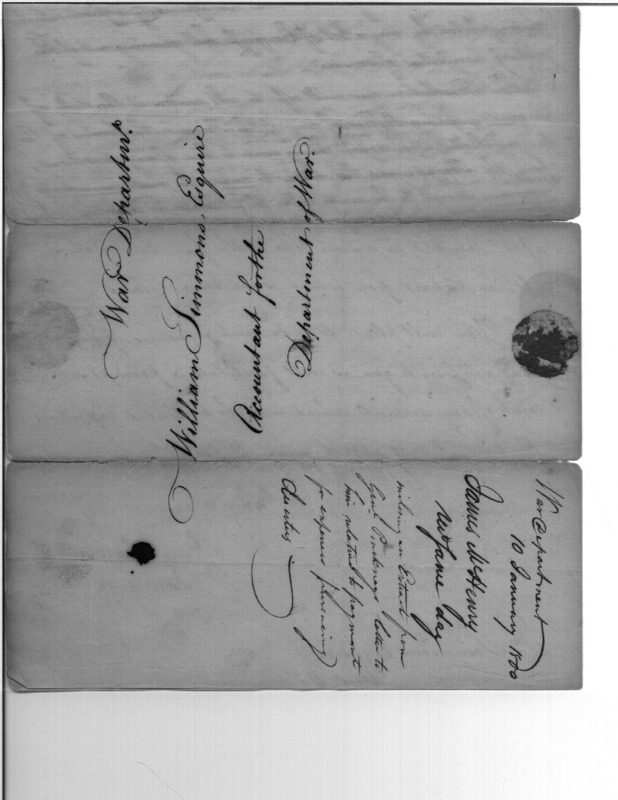 War Departmt.
William Simmons, Esquire
Accountant for the
Department of War.
War Department
10 January 1800
James McHenry
same day
inclosing an Extract from
Genl. Pinckneys letter to
him relative to payment
for expenses pursuing